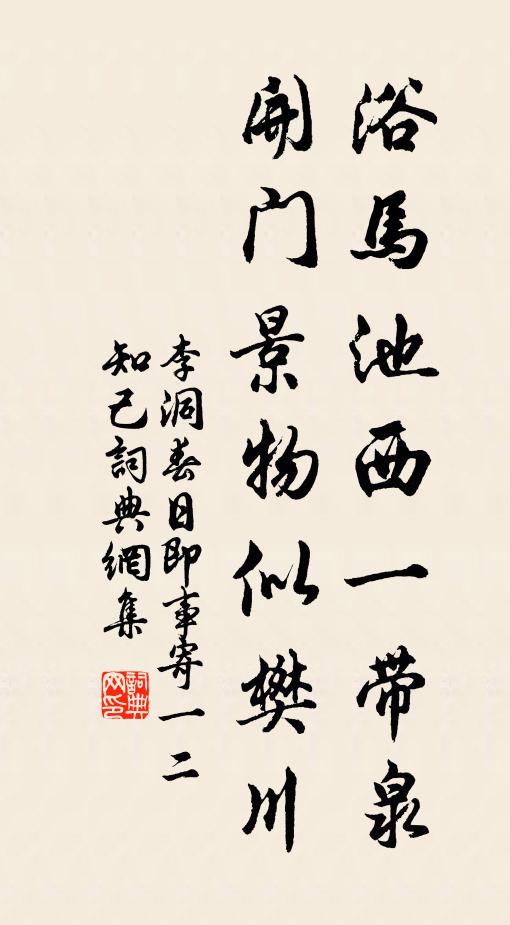 浴馬池西一带泉
開门景物似樊川
李洞春日即事寄一二
知己詞典網集
詞典网印